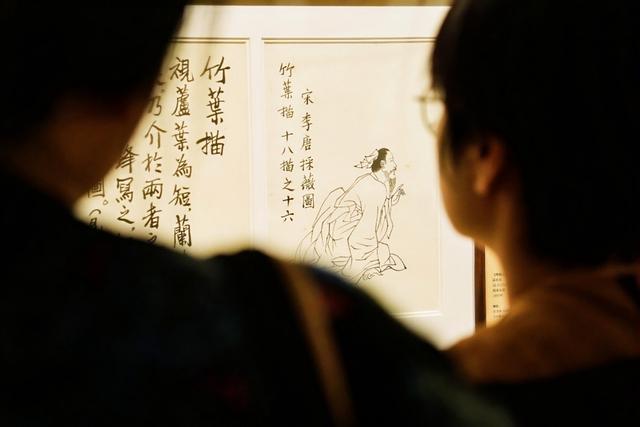 宋李唐採薇圖
竹葉描 十八描之十六
竹葉描
視蘆葉為短,蘭
乃介於兩者之
寫之,
圖。(